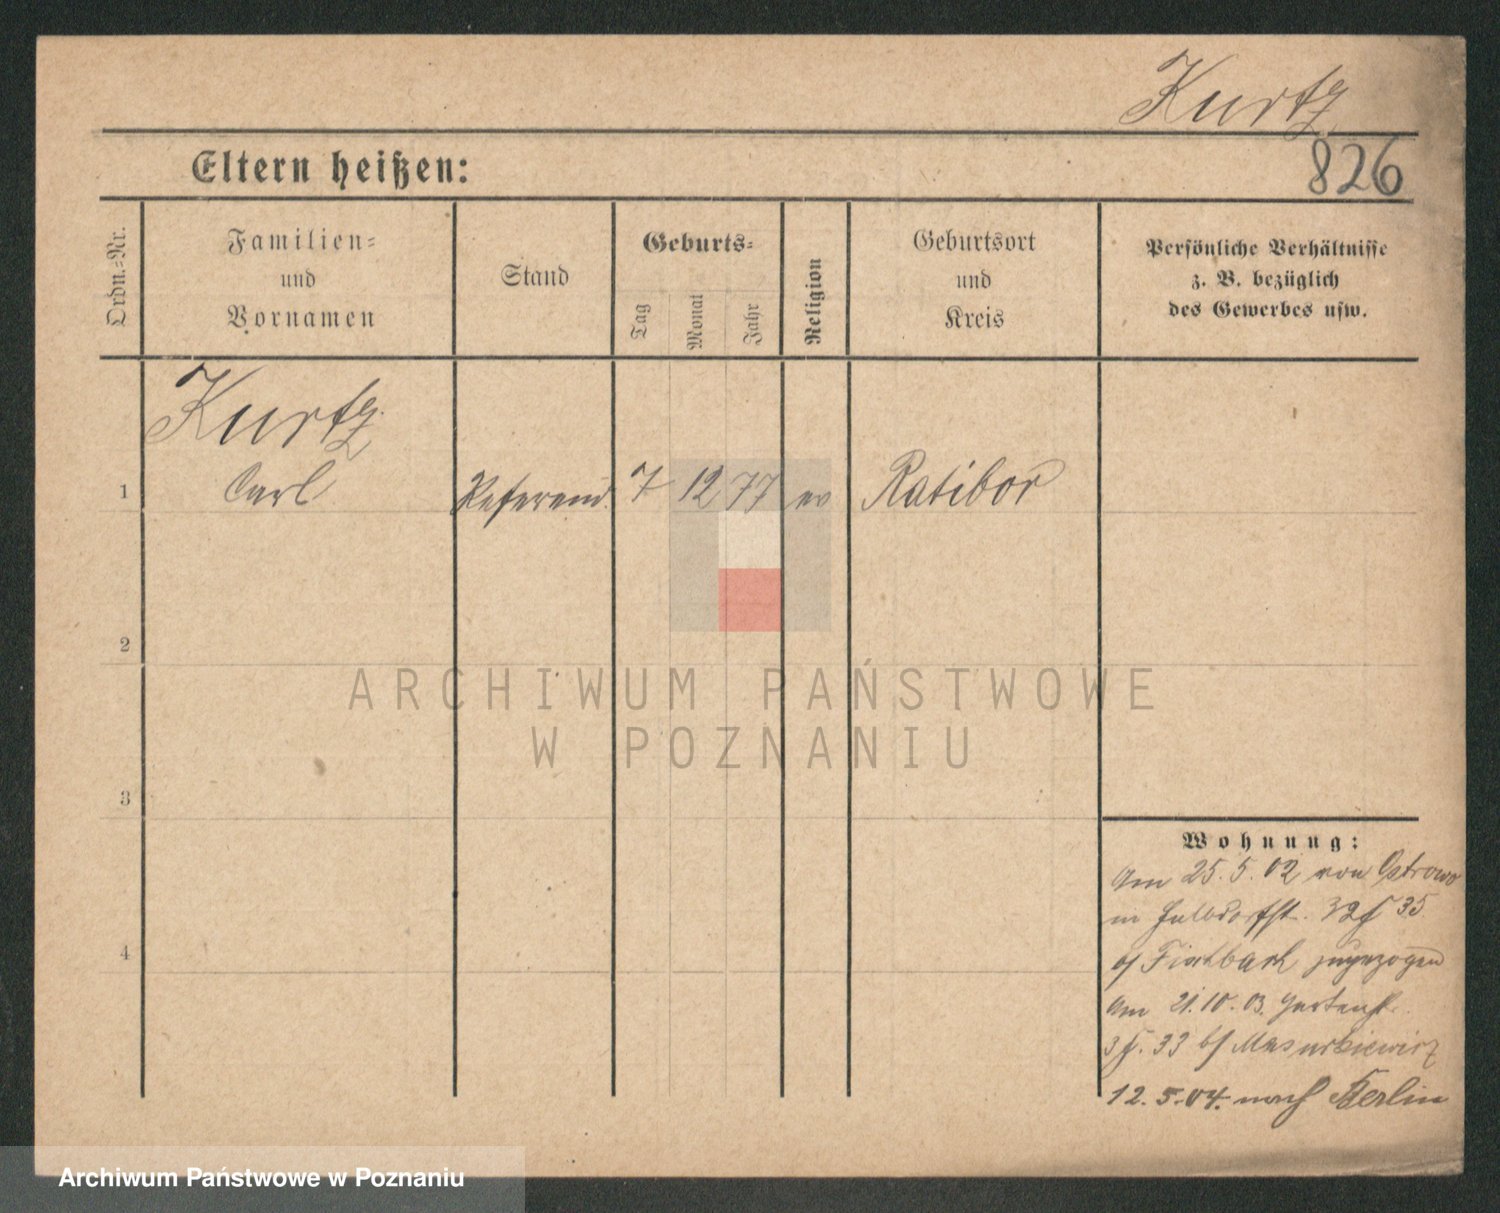 Kurtz
826
Eltern heißen:
Ordn.-Nr.
Familien-
und
Vornamen
Stand
Geburts-
Tag
Monat
Jahr
Religion
Geburtsort
und
Kreis
Persönliche Verhältnisse
z. B. bezüglich
des Gewerbes usw.
Kurtz
1 Carl Referend. 7 12 77 ev Ratibor
2
3
4
Wohnung:
Am 25.5.02 von Ostrowo
in 35
b/ Fischbach zugezogen
Am 21.10.03. Gartenst.
33 b/ Masurkiewicz
12.5.04. nach Berlin
ARCHIWUM PAŃSTWOWE
W POZNANIU
Archiwum Państwowe w Poznaniu